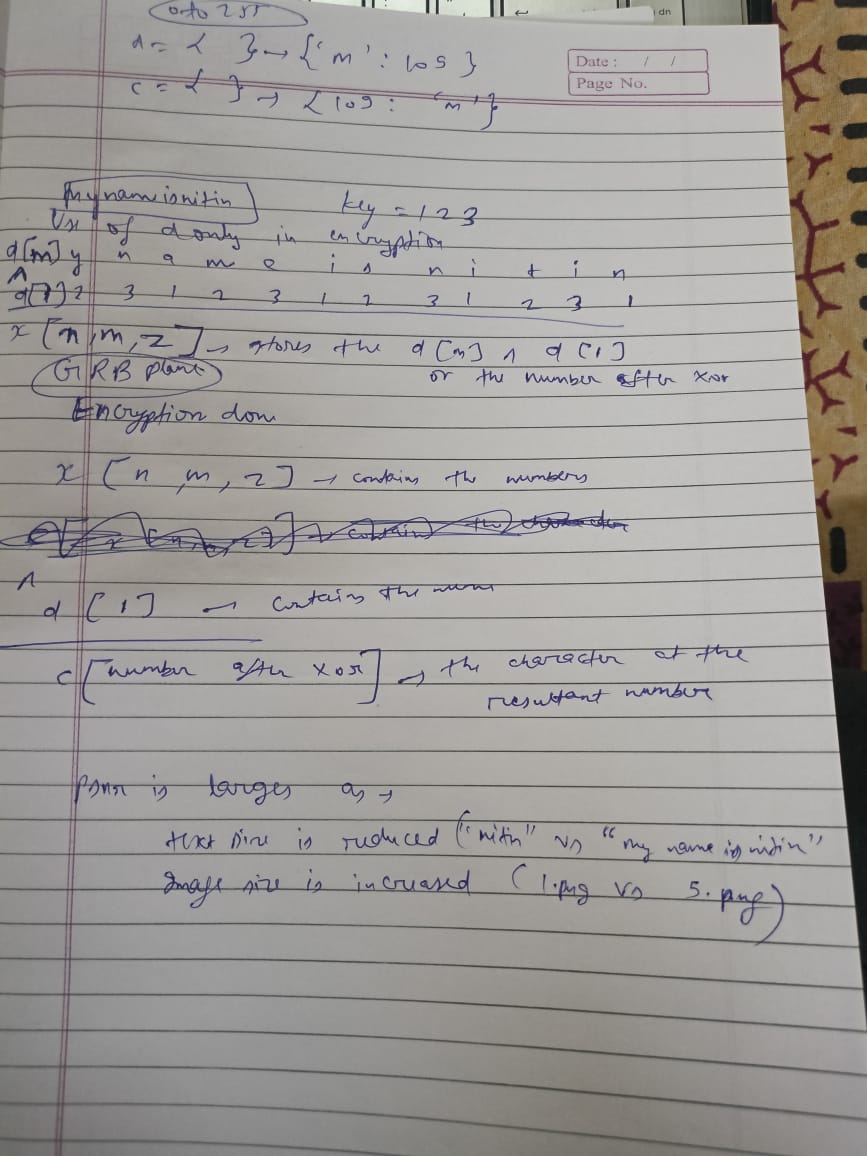 0 to 255
d = { } → {'m' : 109}
c = { } → {109 : 'm'}
Date : / /
Page No.
dn
mynameisnitin key = 123
Use of d only in encryption
d[m] y n a m e i s n i t i n
^
d[1] 2 3 1 2 3 1 2 3 1 2 3 1
x [n, m, z] → stores the d[m] ^ d[1]
or the number after xor
GRB plane
Encryption done
x [n, m, z] → contains the numbers
^
d [1] → contains the
c [number after xor] → the character at the
resultant number
psnr is larges as →
text size is reduced ("nitin" vs "my name is nitin"
Image size is increased (1.png vs 5.png)